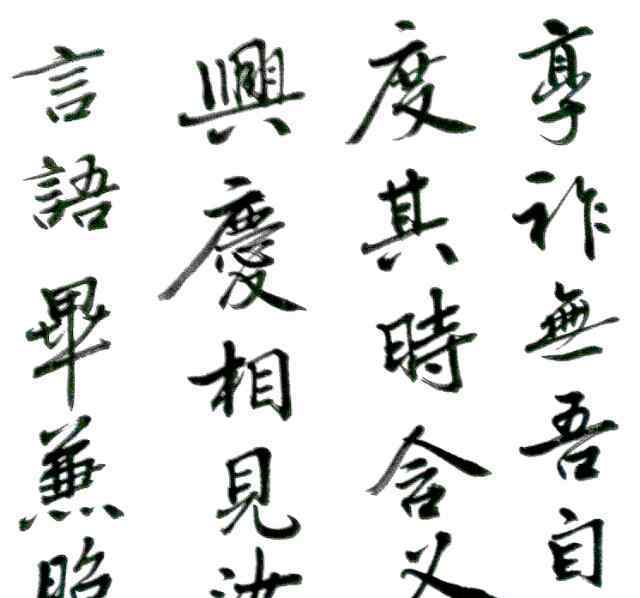 享祚無吾自
度其時含义
興慶相見汝
言語畢兼昭